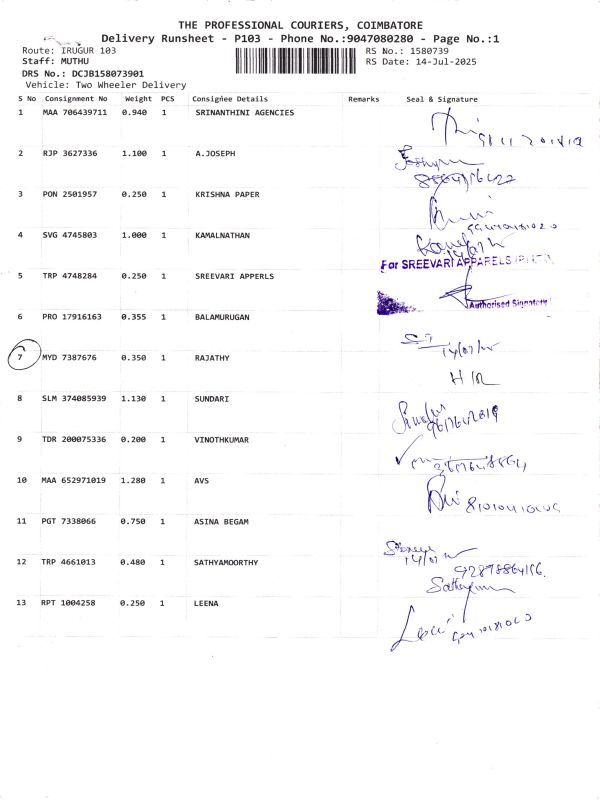 THE PROFESSIONAL COURIERS, COIMBATORE
Delivery Runsheet - P103 - Phone No.:9047080280 - Page No.:1
Route: IRUGUR 103 RS No.: 1580739
Staff: MUTHU RS Date: 14-Jul-2025
DRS No.: DCJB158073901
Vehicle: Two Wheeler Delivery
S No Consignment No Weight PCS Consignee Details Remarks Seal & Signature
1 MAA 706439711 0.940 1 SRINANTHINI AGENCIES
2 RJP 3627336 1.100 1 A.JOSEPH
3 PON 2501957 0.250 1 KRISHNA PAPER
4 SVG 4745803 1.000 1 KAMALNATHAN
For SREEVARI APPARELS
5 TRP 4748284 0.250 1 SREEVARI APPERLS
Authorised Signatory
6 PRO 17916163 0.355 1 BALAMURUGAN
7 MYD 7387676 0.350 1 RAJATHY
8 SLM 374085939 1.130 1 SUNDARI
9 TDR 200075336 0.200 1 VINOTHKUMAR
10 MAA 652971019 1.280 1 AVS
11 PGT 7338066 0.750 1 ASINA BEGAM
12 TRP 4661013 0.480 1 SATHYAMOORTHY
13 RPT 1004258 0.250 1 LEENA